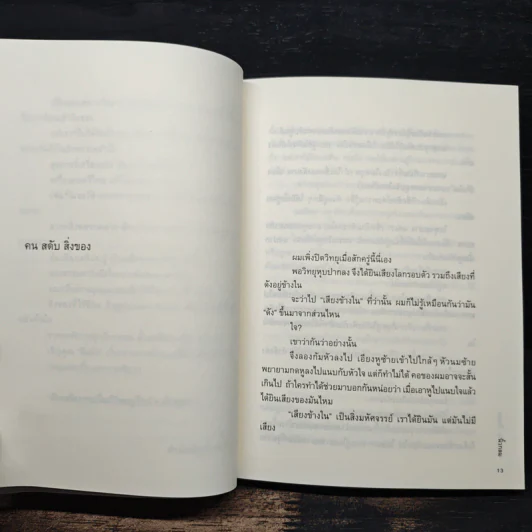 คน สดับ สิ่งของ
ผมเพิ่งปิดวิทยุเมื่อสักครู่นี้นี่เอง
พอวิทยุหุบปากลง จึงได้ยินเสียงโลกรอบตัว รวมถึงเสียงที่
ดังอยู่ข้างใน
จะว่าไป “เสียงข้างใน” ที่ว่านั้น ผมก็ไม่รู้เหมือนกันว่ามัน
“ดัง” ขึ้นมาจากส่วนไหน
ใจ?
เขาว่ากันว่าอย่างนั้น
จึงลองก้มหัวลงไป เอียงหูซ้ายเข้าไปใกล้ๆ หัวนมซ้าย
พยายามกดหูลงไปแนบกับหัวใจ แต่ก็ทำไม่ได้ คอของผมอาจจะสั้น
เกินไป ถ้าใครทำได้ช่วยมาบอกกันหน่อยว่า เมื่อเอาหูไปแนบใจแล้ว
ได้ยินเสียงของมันไหม
“เสียงข้างใน” เป็นสิ่งมหัศจรรย์ เราได้ยินมัน แต่มันไม่มี
เสียง
13